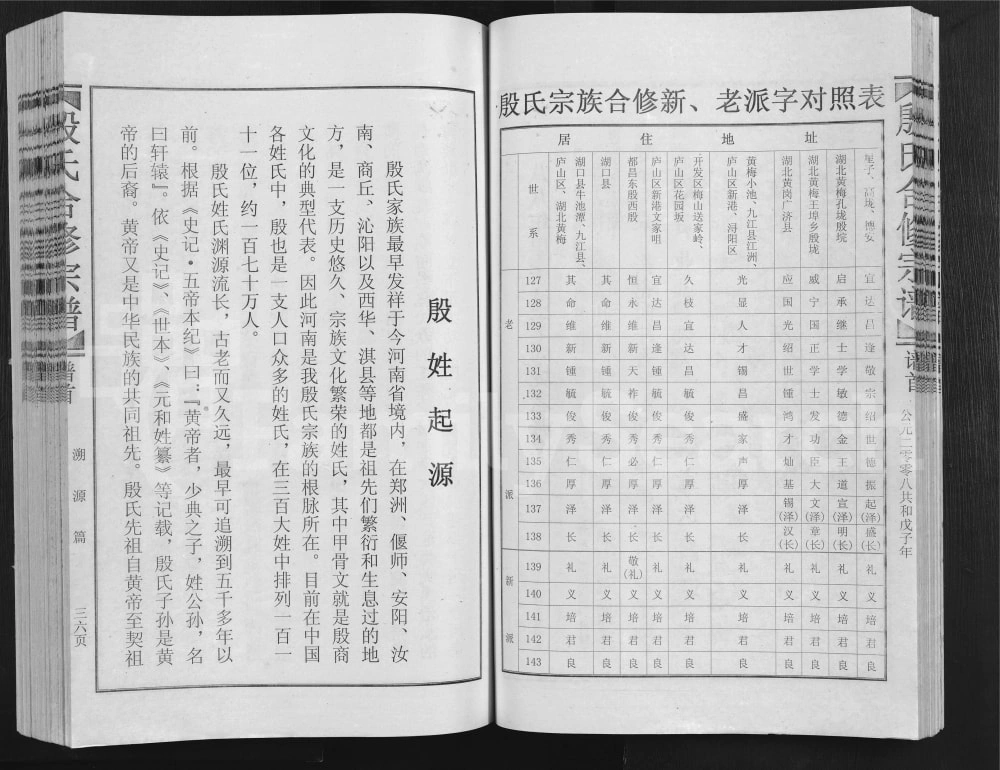 殷氏宗族合修新、老派字对照表
居住地址
世系
庐山区、湖北黄梅
湖口县牛池潭、九江县、
湖口县
都昌东殷西殷
庐山区新港文家咀
庐山区花园坂
开发区梅山送家岭、
庐山区新港、浔阳区
黄梅小池、九江县江洲
湖北黄岗广济县
湖北黄梅王埠乡殷垅
湖北黄梅孔垅殷垸
星子、高垅、德安
老派
127 其 其 恒 宜 久 光 应 威 启 宜
128 命 命 永 达 枝 显 国 宁 承 达
129 维 维 维 昌 宜 人 光 国 继 昌
130 新 新 新 逢 达 才 绍 正 士 逢
131 锺 锺 天 锺 昌 锡 世 学 学 敬
132 毓 毓 祚 毓 毓 昌 锺 士 敏 宗
133 俊 俊 俊 俊 俊 盛 鸿 发 德 绍
134 秀 秀 秀 秀 秀 家 才 功 金 世
135 仁 仁 必 仁 仁 声 灿 臣 王 德
136 厚 厚 厚 厚 厚 厚 基 大 道 振
137 泽 泽 泽 泽 泽 泽 锡(泽) 文(泽) 宣(泽) 起(泽)
138 长 长 长 长 长 长 汉(长) 章(长) 明(长) 盛(长)
新派
139 礼 礼 敬(礼) 礼 礼 礼 礼 礼 礼 礼
140 义 义 义 义 义 义 义 义 义 义
141 培 培 培 培 培 培 培 培 培 培
142 君 君 君 君 君 君 君 君 君 君
143 良 良 良 良 良 良 良 良 良 良
殷氏合修宗谱
谱首
公元二零零八共和戊子年
殷姓起源
殷氏家族最早发祥于今河南省境内，在郑洲、偃师、安阳、汝
南、商丘、沁阳以及西华、淇县等地都是祖先们繁衍和生息过的地
方，是一支历史悠久、宗族文化繁荣的姓氏，其中甲骨文就是殷商
文化的典型代表。因此河南是我殷氏宗族的根脉所在。目前在中国
各姓氏中，殷也是一支人口众多的姓氏，在三百大姓中排列一百一
十一位，约一百七十万人。
殷氏姓氏渊源流长，古老而又久远，最早可追溯到五千多年以
前。根据《史记·五帝本纪》曰：『黄帝者，少典之子，姓公孙，名
曰轩辕』。依《史记》、《世本》、《元和姓纂》等记载，殷氏子孙是黄
帝的后裔。黄帝又是中华民族的共同祖先。殷氏先祖自黄帝至契祖
殷氏合修宗谱
谱首
溯源篇
三六页